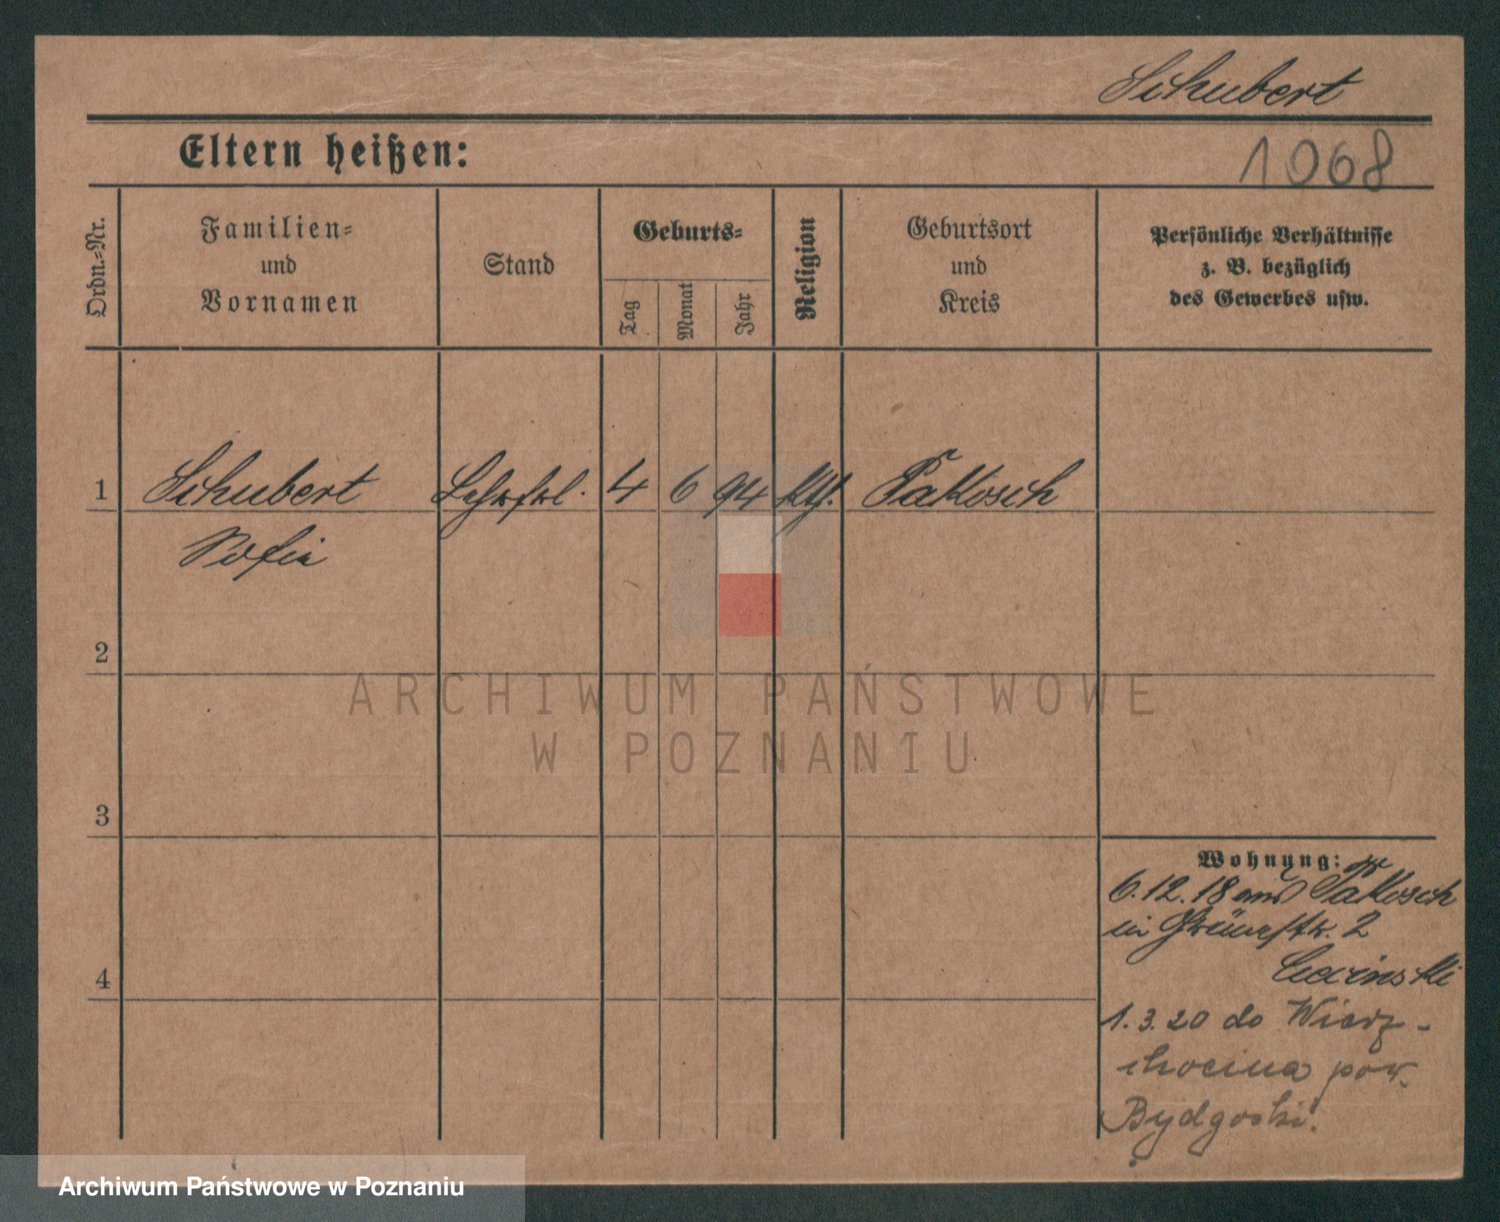 Schubert
Eltern heißen:
1068
Ordn.-Nr.
Familien-
und
Vornamen
Stand
Geburts-
Tag
Monat
Jahr
Religion
Geburtsort
und
Kreis
Persönliche Verhältnisse
z. B. bezüglich
des Gewerbes usw.
1
Schubert
Sofia
4
6
94
Kth.
Pakosch
2
3
4
Wohnung:
6.12.18 aus Pakosch
in Grünestr. 2
1.3.20 do Wierz-
chocina pow.
Bydgoski.
ARCHIWUM PAŃSTWOWE
W POZNANIU
Archiwum Państwowe w Poznaniu